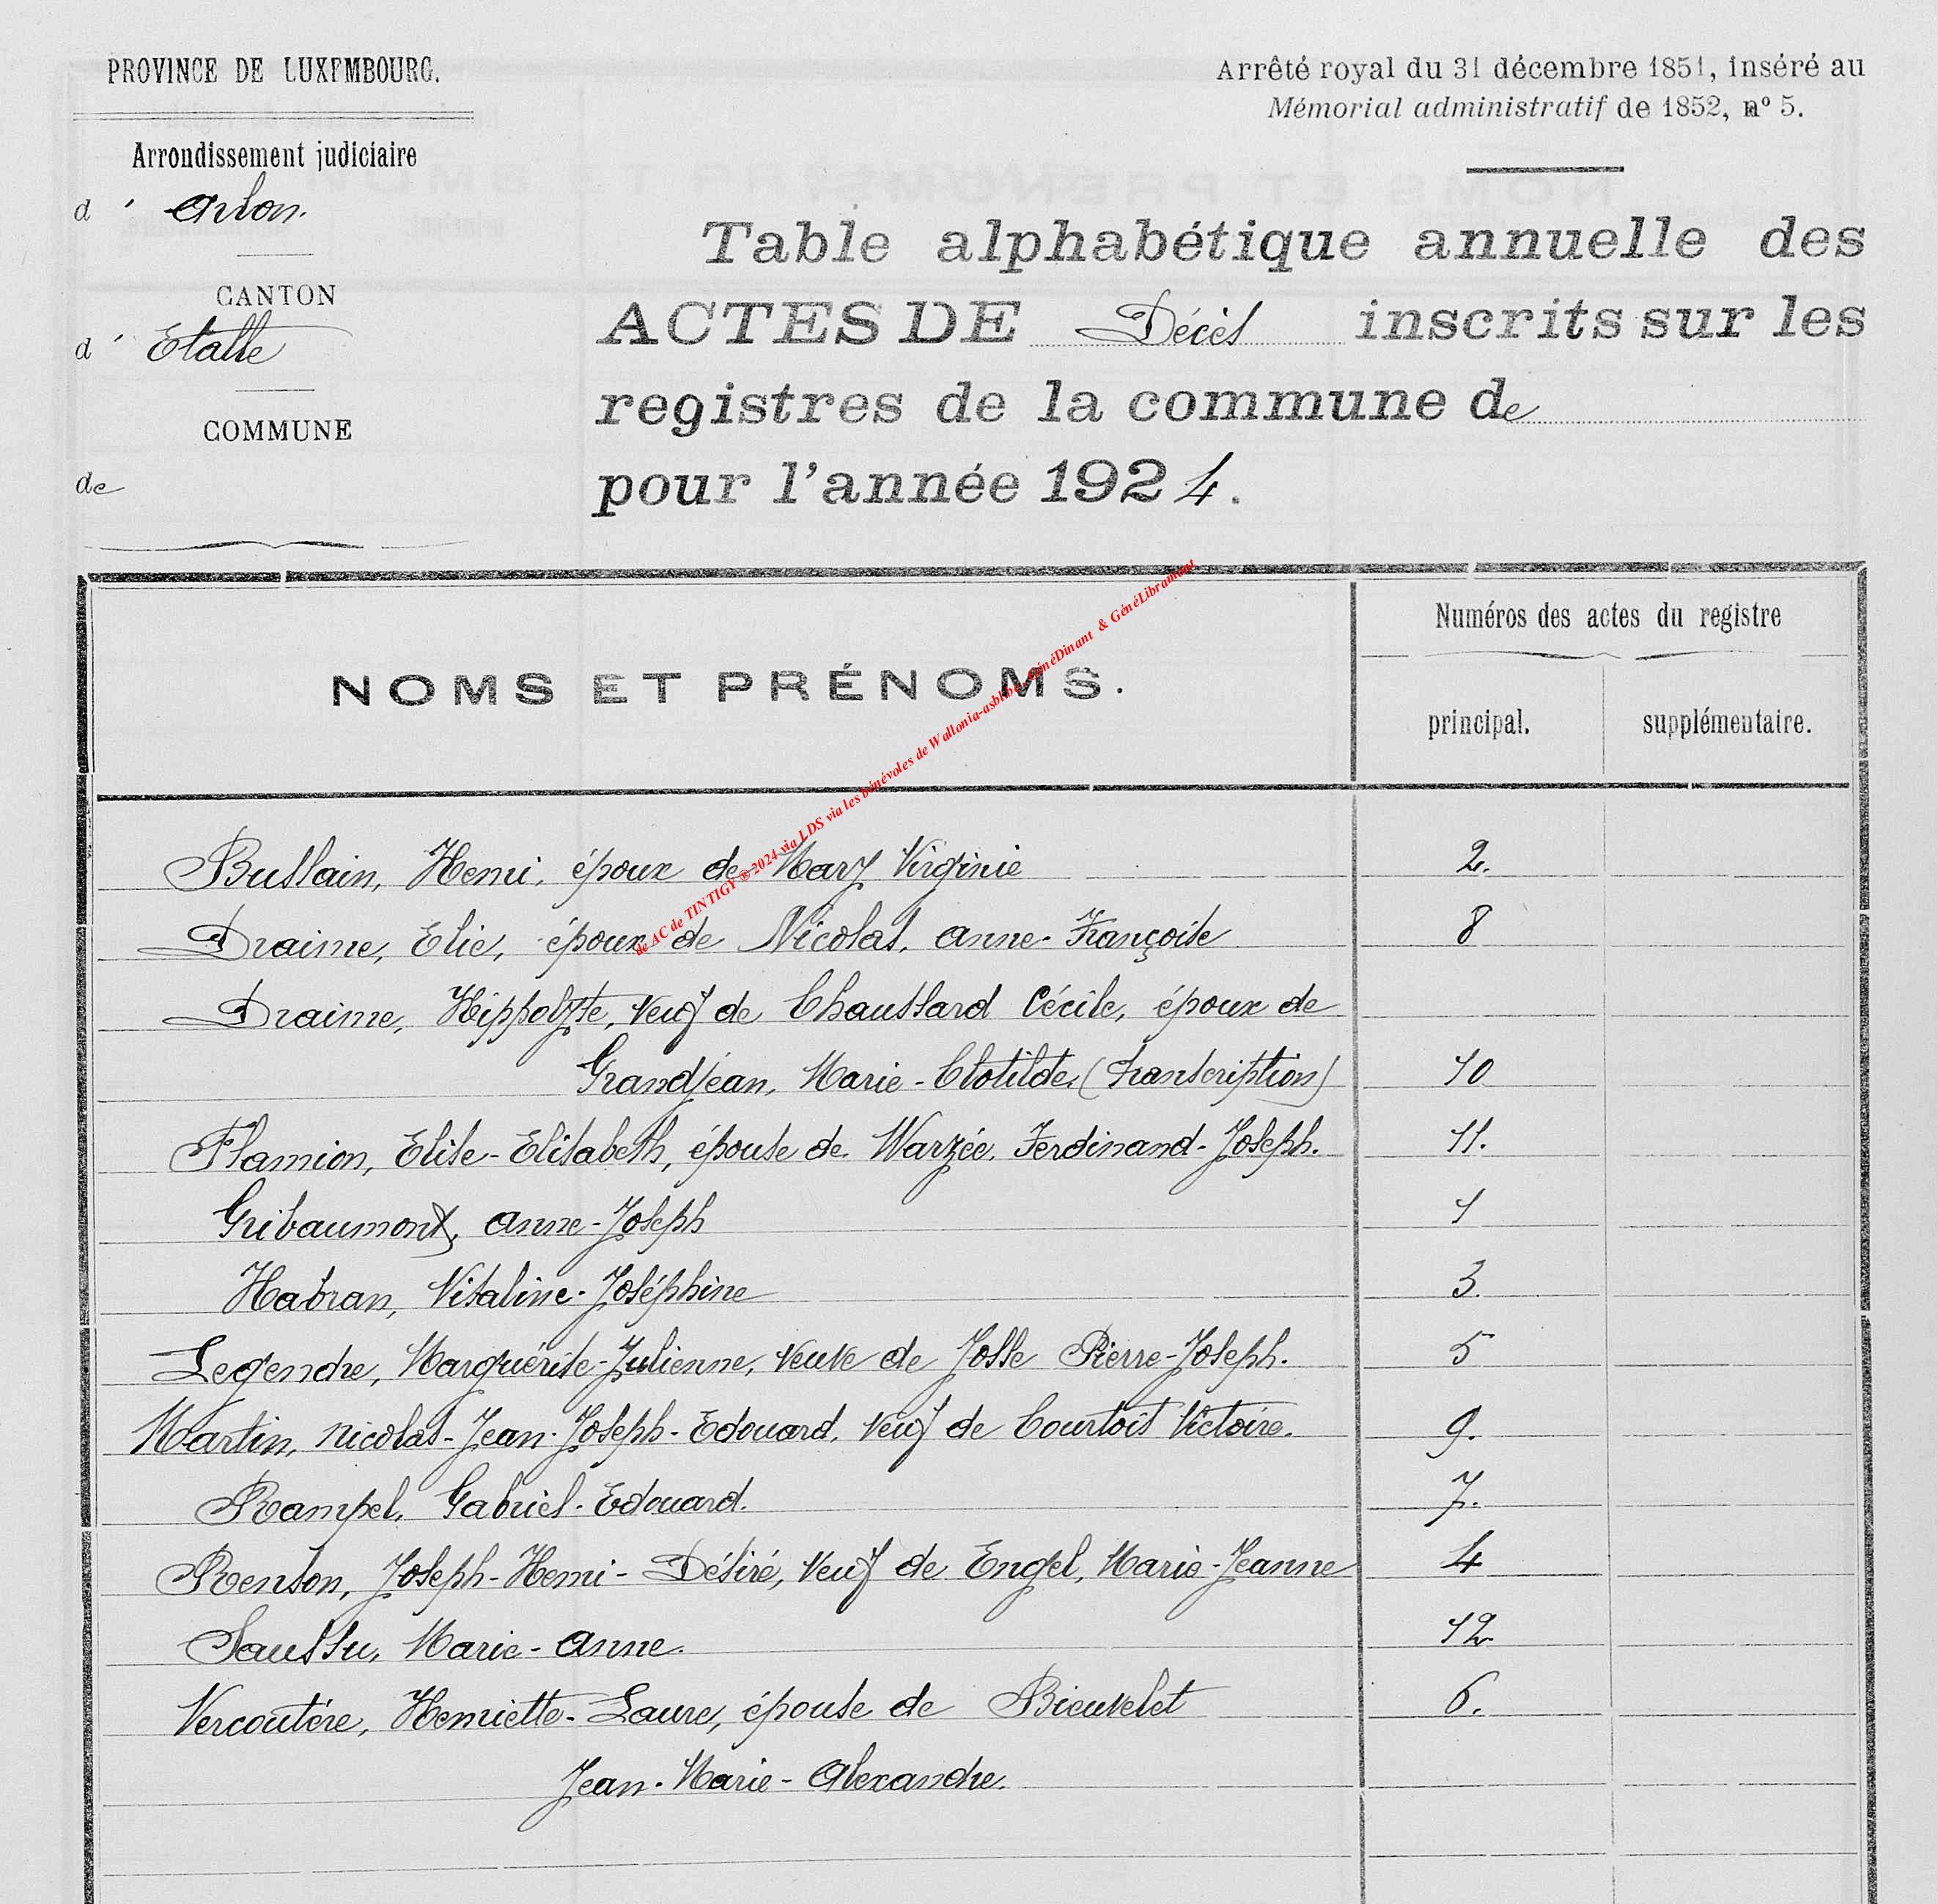 PROVINCE DE LUXEMBOURG.
Arrondissement judiciaire
d' Arlon.
CANTON
d' Etalle
COMMUNE
de
Arrêté royal du 31 décembre 1851, inséré au
Mémorial administratif de 1852, nº 5.
Table alphabétique annuelle des
ACTES DE Décès inscrits sur les
registres de la commune de
pour l'année 1924.
NOMS ET PRÉNOMS.
Numéros des actes du registre
principal. supplémentaire.
de AC de TINTIGY ® 2024 via LDS via les bénévoles de Wallonia-asbl.be, GénéDinant & GénéLibramont
Bussain, Henri, époux de Mary Virginie 2.
Draime, Elie, époux de Nicolas, Anne-Françoise 8
Draime, Hippolyte, veuf de Chaussard Cécile, époux de
Grandjean, Marie-Clotilde, (transcription) 10
Flamion, Elise-Elisabeth, épouse de Warzée, Ferdinand-Joseph. 11.
Gribaumont, Anne-Joseph 1
Habran, Vitaline-Joséphine 3.
Legendre, Marguérite-Julienne, veuve de Josse Pierre-Joseph. 5
Martin, Nicolas-Jean-Joseph-Edouard, veuf de Courtois Victoire. 9.
Rampel, Gabriel-Edouard. 7.
Renson, Joseph-Henri-Désiré, veuf de Engel, Marie-Jeanne 4
Saussu, Marie-Anne. 12
Vercoutére, Henriette-Laure, épouse de Bieuvelet 6.
Jean-Marie-Alexandre.